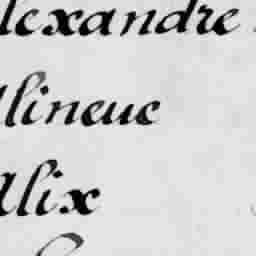 lexandre
Alineue
Alix